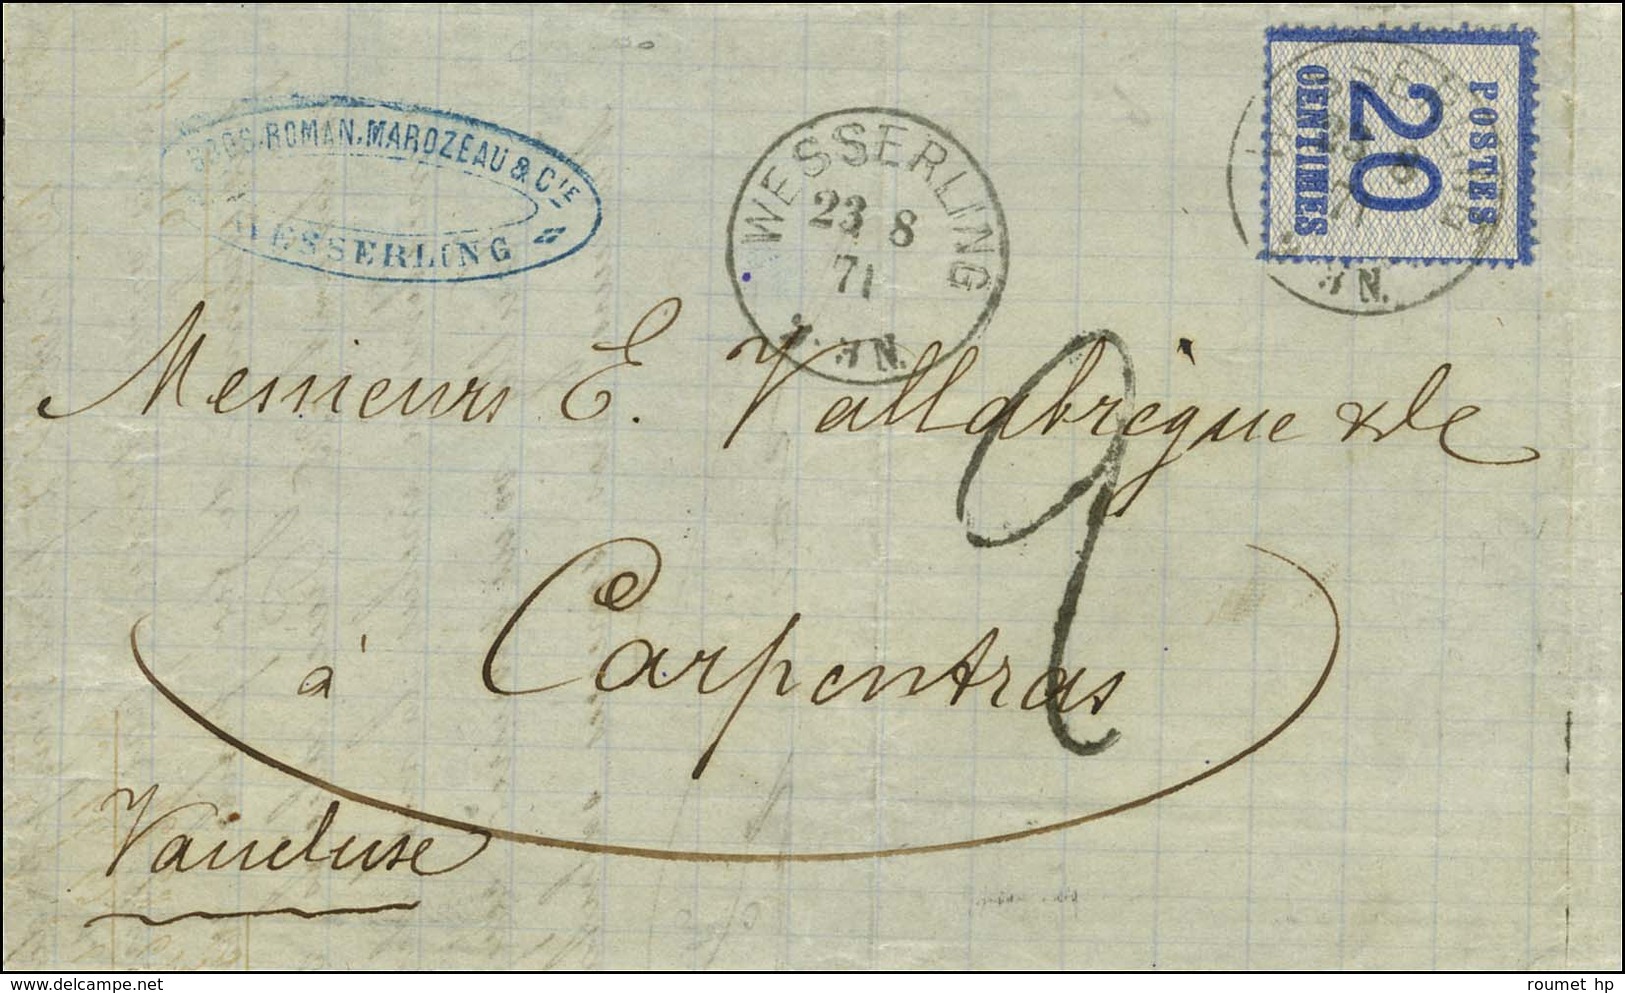 ROMAN, MAROZEAU & CIE
WESSERLING
WESSERLING
23 8
71
N.
POSTES
20
CENTIMES
23
71
N.
Messieurs E. Vallabrègue & Cie
2
à Carpentras
Vaucluse
www.delcampe.net
roumet hp